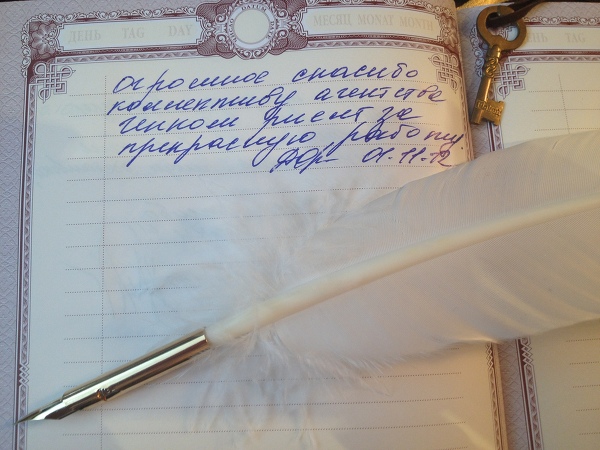 ДЕНЬ TAG DAY
МЕСЯЦ MONAT MONTH
TAG
огромное спасибо
коллективу агентства
за
прекрасную работу
01.11.12